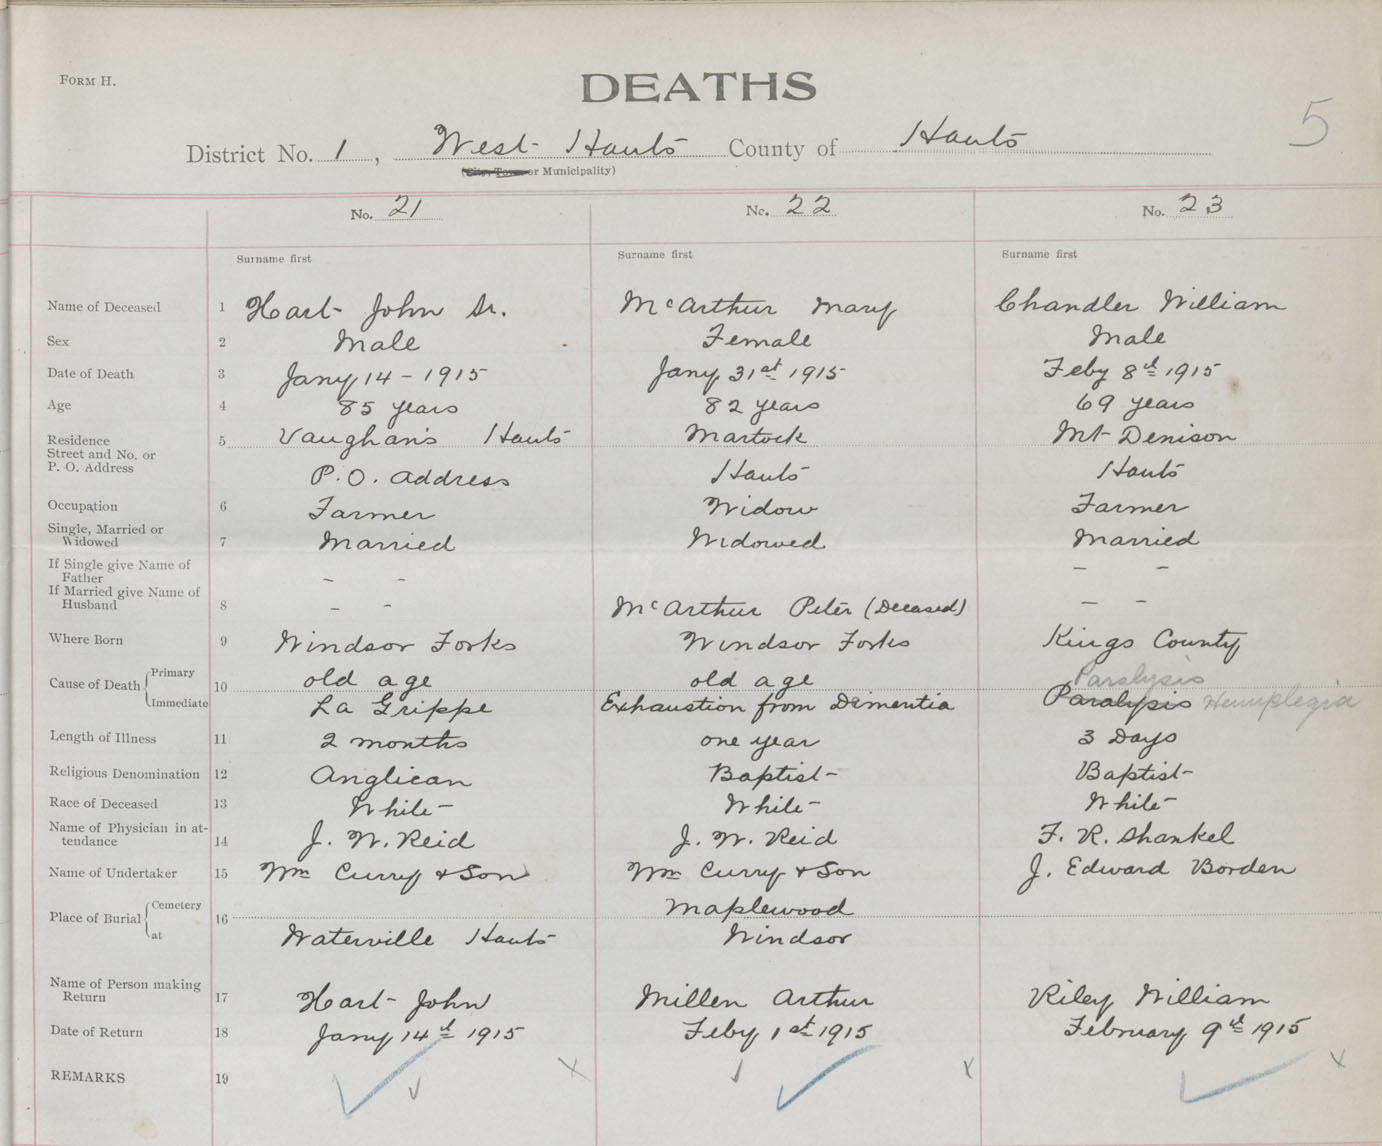 FORM H.
DEATHS
5
District No. 1, West Hants County of Hants
(City, Town or Municipality)
No. 21 No. 22 No. 23
Surname first Surname first Surname first
Name of Deceased 1 Hart John Sr. McArthur Mary Chandler William
Sex 2 Male Female Male
Date of Death 3 Jany 14 - 1915 Jany 31st 1915 Feby 8th 1915
Age 4 85 years 82 years 69 years
Residence 5 Vaughan's Hants Martock Mt Denison
Street and No. or
P. O. Address P.O. Address Hants Hants
Occupation 6 Farmer Widow Farmer
Single, Married or
Widowed 7 Married Widowed Married
If Single give Name of
Father - - - -
If Married give Name of
Husband 8 - - McArthur Peter (Deceased) - -
Where Born 9 Windsor Forks Windsor Forks Kings County
Cause of Death Primary 10 old age old age Paralysis
Immediate La Grippe Exhaustion from Dimentia Paralysis Hemiplegia
Length of Illness 11 2 months one year 3 Days
Religious Denomination 12 Anglican Baptist Baptist
Race of Deceased 13 White White White
Name of Physician in at-
tendance 14 J. W. Reid J. W. Reid F. R. Shankel
Name of Undertaker 15 Wm Curry & Son Wm Curry & Son J. Edward Borden
Place of Burial Cemetery 16 Maplewood
at Waterville Hants Windsor
Name of Person making
Return 17 Hart John Millen Arthur Riley William
Date of Return 18 Jany 14th 1915 Feby 1st 1915 February 9th 1915
REMARKS 19